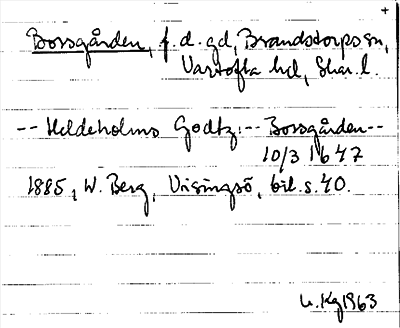 +
Borsgården, f.d. gd, Brandstorps sn,
Vartofta hd, Skar. l.
-- Hildeholms Godtz: -- Borsgården --
10/3 1647
1885, W. Berg, Visingsö, bil. s. 40.
Kg 1963